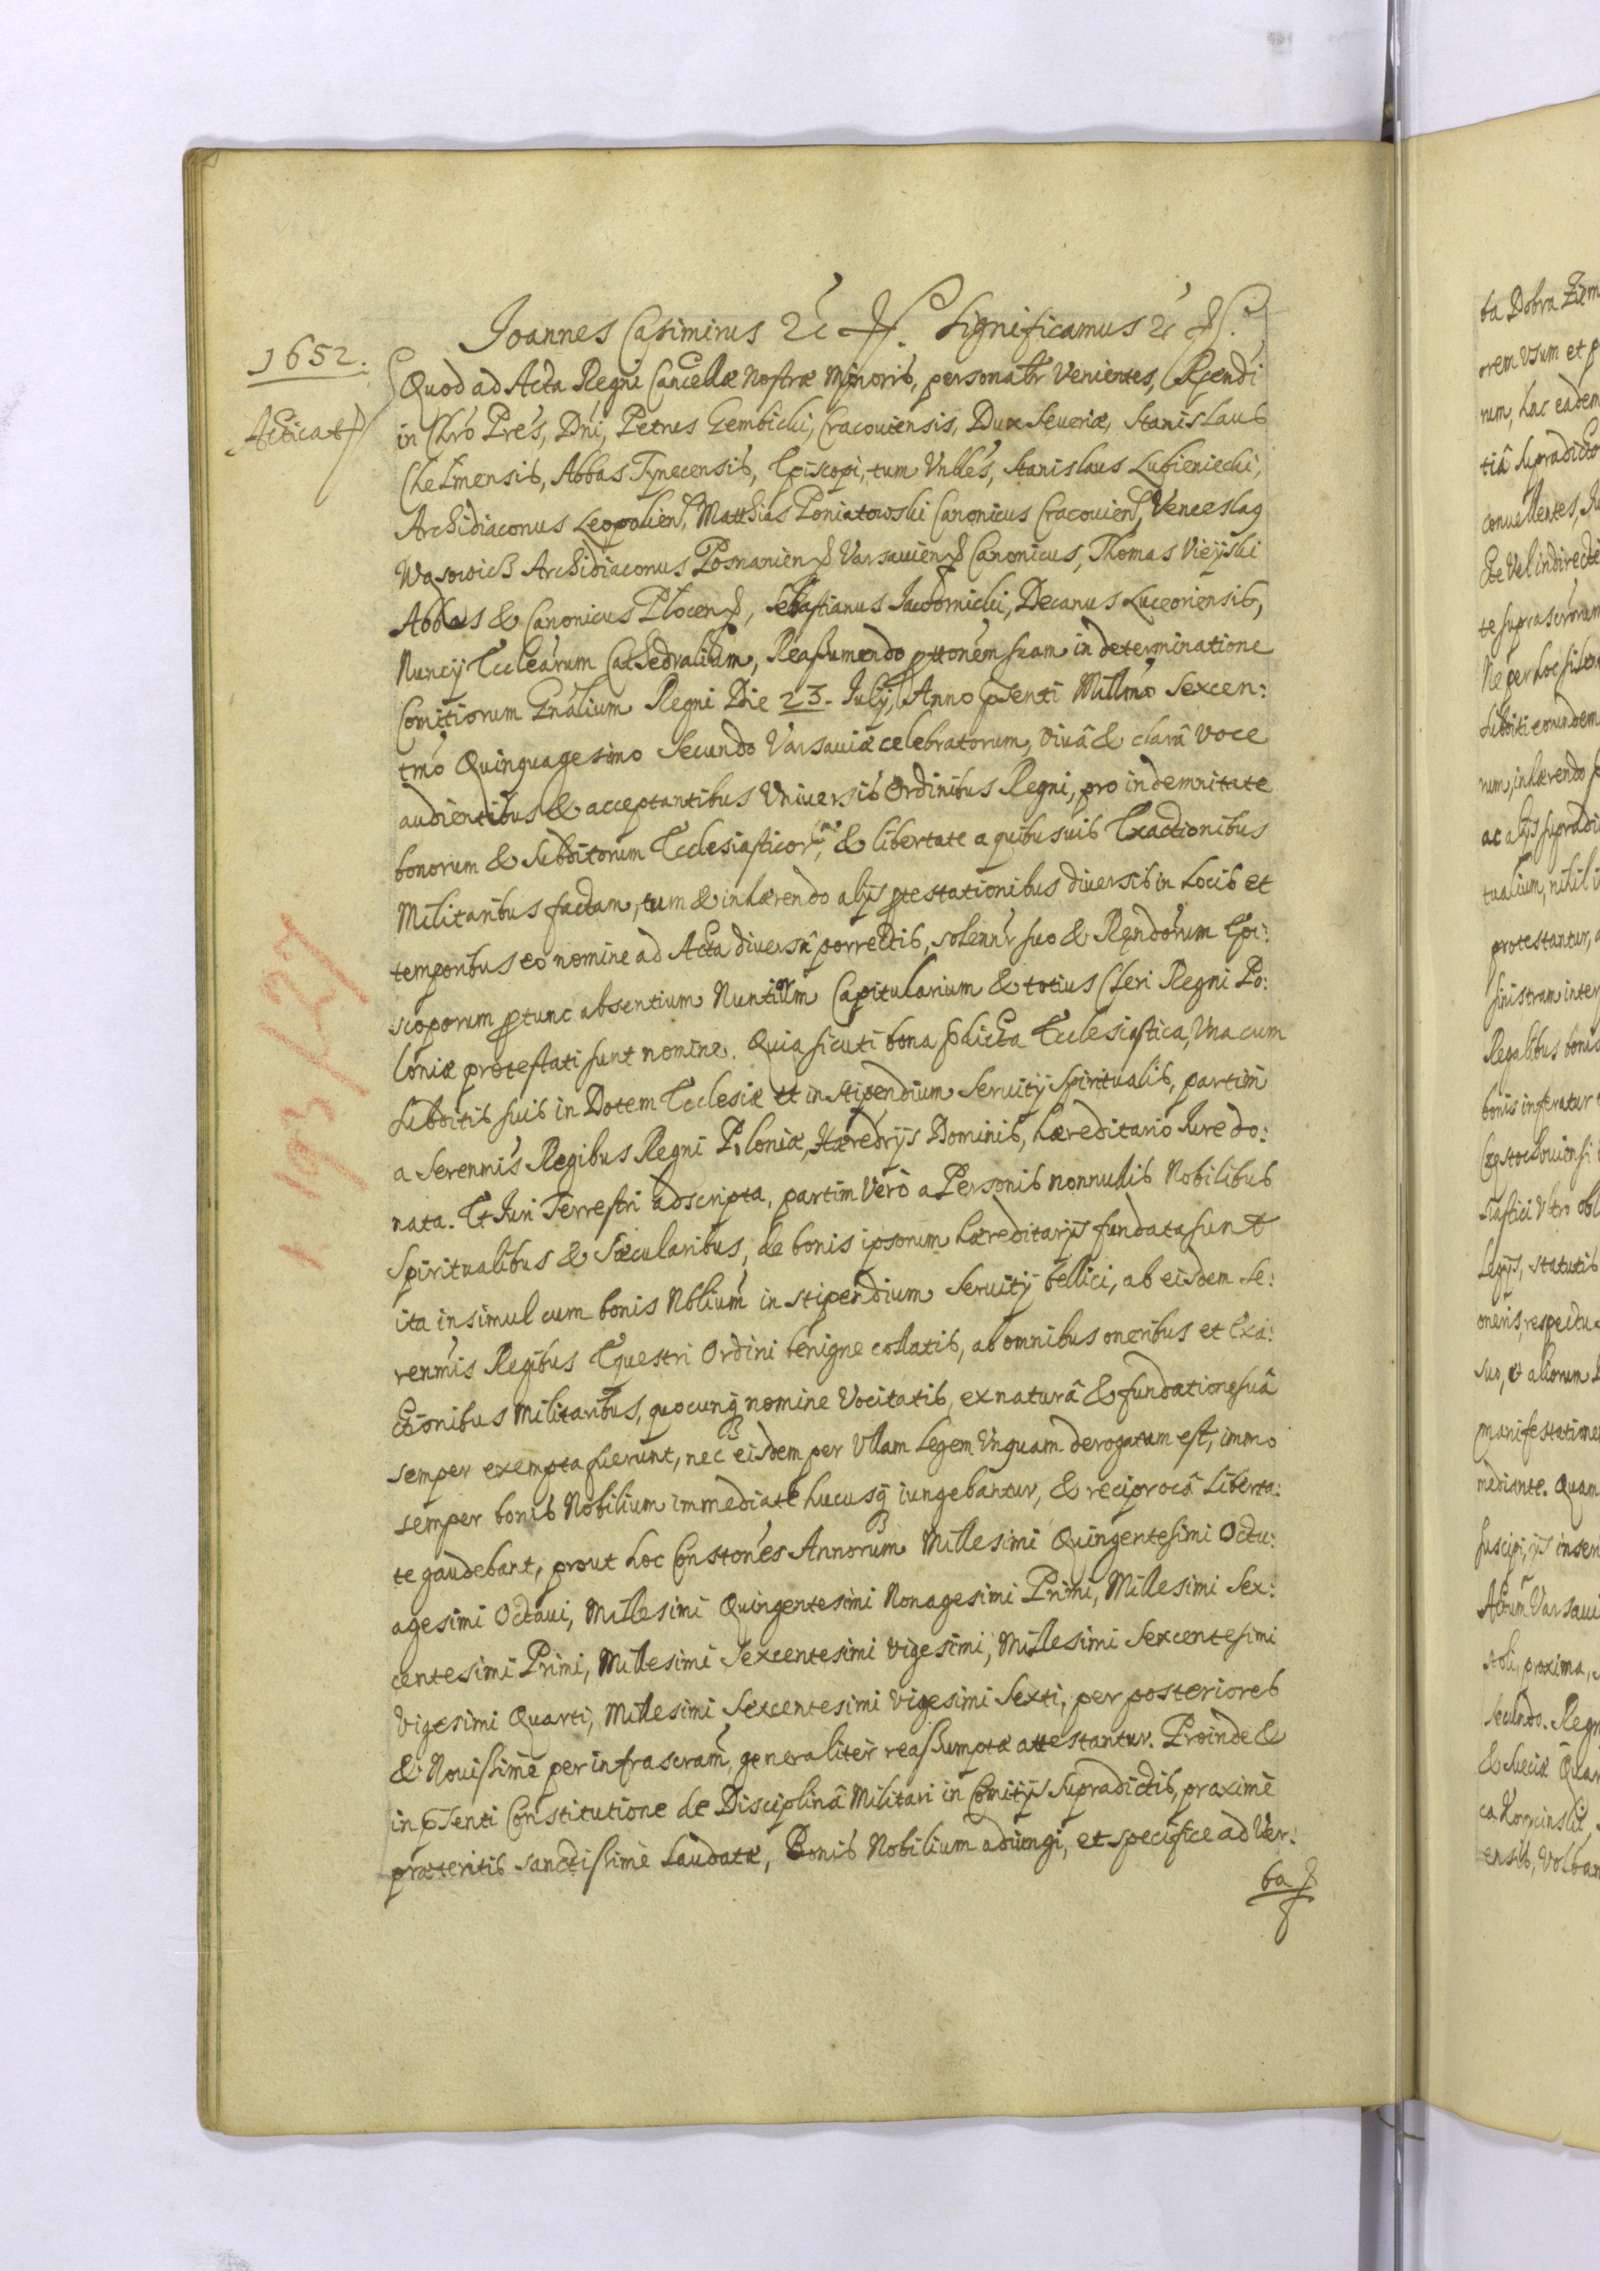 Joannes Casimirus &c Significamus &c
1652.
Acticat
Quod ad Acta Regni Cancellæ Nostræ Minoris, personalr Venientes, Rgendi
in Chro Pres, Dni, Petrus Gembicki, Cracouiensis, Dux Seueriæ, Stanislaus
Chelmensis, Abbas Tynecensis, Episcopi, tum Vnlles, Stanislaus Lubieniecki,
Archidiaconus Leopolien, Matthias Poniatowski Canonicus Cracouien, Venceslaq
Wasowicz Archidiaconus Posnanien Varsauien Canonicus, Thomas Vieyski
Abbas & Canonicus Plocen, Sebastianus Jacdornicki, Decanus Luceoriensis,
Nuncij Ecclearum Cathedralium, Reassumendo pttonem suam in determinatione
Comitiorum Gnalium Regni Die 23. Julij, Anno psenti Millmo Sexcen:
tmo Quinquagesimo Secundo Varsauiæ celebratorum, viuâ & clarâ voce
audientibus & acceptantibus Vniuersis Ordinibus Regni, pro indemnitate
bonorum & Subditorum Ecclesiasticor, & libertate a quibusuis Exactionibus
Militaribus factam, tum & inhærendo alijs ptestationibus diuersis in Locis et
temporibus eo nomine ad Acta diuersa porrectis, solennr suo & Rgndorum Epi:
scoporum ptunc absentium Nuntiorum Capitularium & totius Cleri Regni Po:
loniæ protestati sunt nomine. Quia sicuti bona pdicta Ecclesiastica, Vna cum
Subditis suis in Dotem Ecclesiæ et in stipendium Seruitij Spiritualis, partim
a Serenmis Regibus Regni Poloniæ, Hæredrijs Dominis, hæreditario Jure do:
nata. Et Juri Terrestri adscripta, partim Verò a Personis nonnullis Nobilibus
Spiritualibus & Sæcularibus, de bonis ipsorum hæreditarijs fundata sunt
ita insimul cum bonis Nblium in stipendium Seruitij bellici, ab eisdem Se:
renmis Regibus Equestri Ordini benigne collatis, ab omnibus oneribus et Exa:
ctionibus Militaribus, quocunq nomine Vocitatis, ex naturâ & fundatione suâ
semper exempta fuerunt, nec eisdem per Vllam Legem Vnquam derogatum est, immo
semper bonis Nobilium immediatè hucusq iungebantur, & reciprocâ Liberta:
te gaudebant, prout hoc Constones Annorum Millesimi Quingentesimi Octu:
agesimi Octaui, Millesimi Quingentesimi Nonagesimi Primi, Millesimi Sex:
centesimi Primi, Millesimi Sexcentesimi Vigesimi, Millesimi Sexcentesimi
Vigesimi Quarti, Millesimi Sexcentesimi Vigesimi Sexti, per posteriores
& Nouissimè per infrascram, generaliter reassumptæ attestantur. Proinde &
in psenti Constitutione de Disciplinâ Militari in Comitijs Supradictis, proximè
præteritis sanctissimè Laudatæ, Bonis Nobilium adiungi, et specifice ad Ver:
ba
ba Dobra Ziem
orem Vsum et p
rum, hac eadem
tiâ supradicto
conuellentes, Ju
cte Vel indirectè
te suprascrorum
Subditi eorundem
rum, inhærendo
ac alijs supradi
tualium, nihil i
protestantur,
sinistram inter
Regalibus bonis
bonis inferatur
Częstochouiensi
siastici Vltro obl
Legijs, statutis
oneris, respectu
suo, & aliorum
manifestatione
mediante. Quam
suscipi, ijs inser
Actum Varsaui
stoli, proxima,
secundo. Regn
& Sueciæ Quar
ca Korycinski
ensis, Volbor